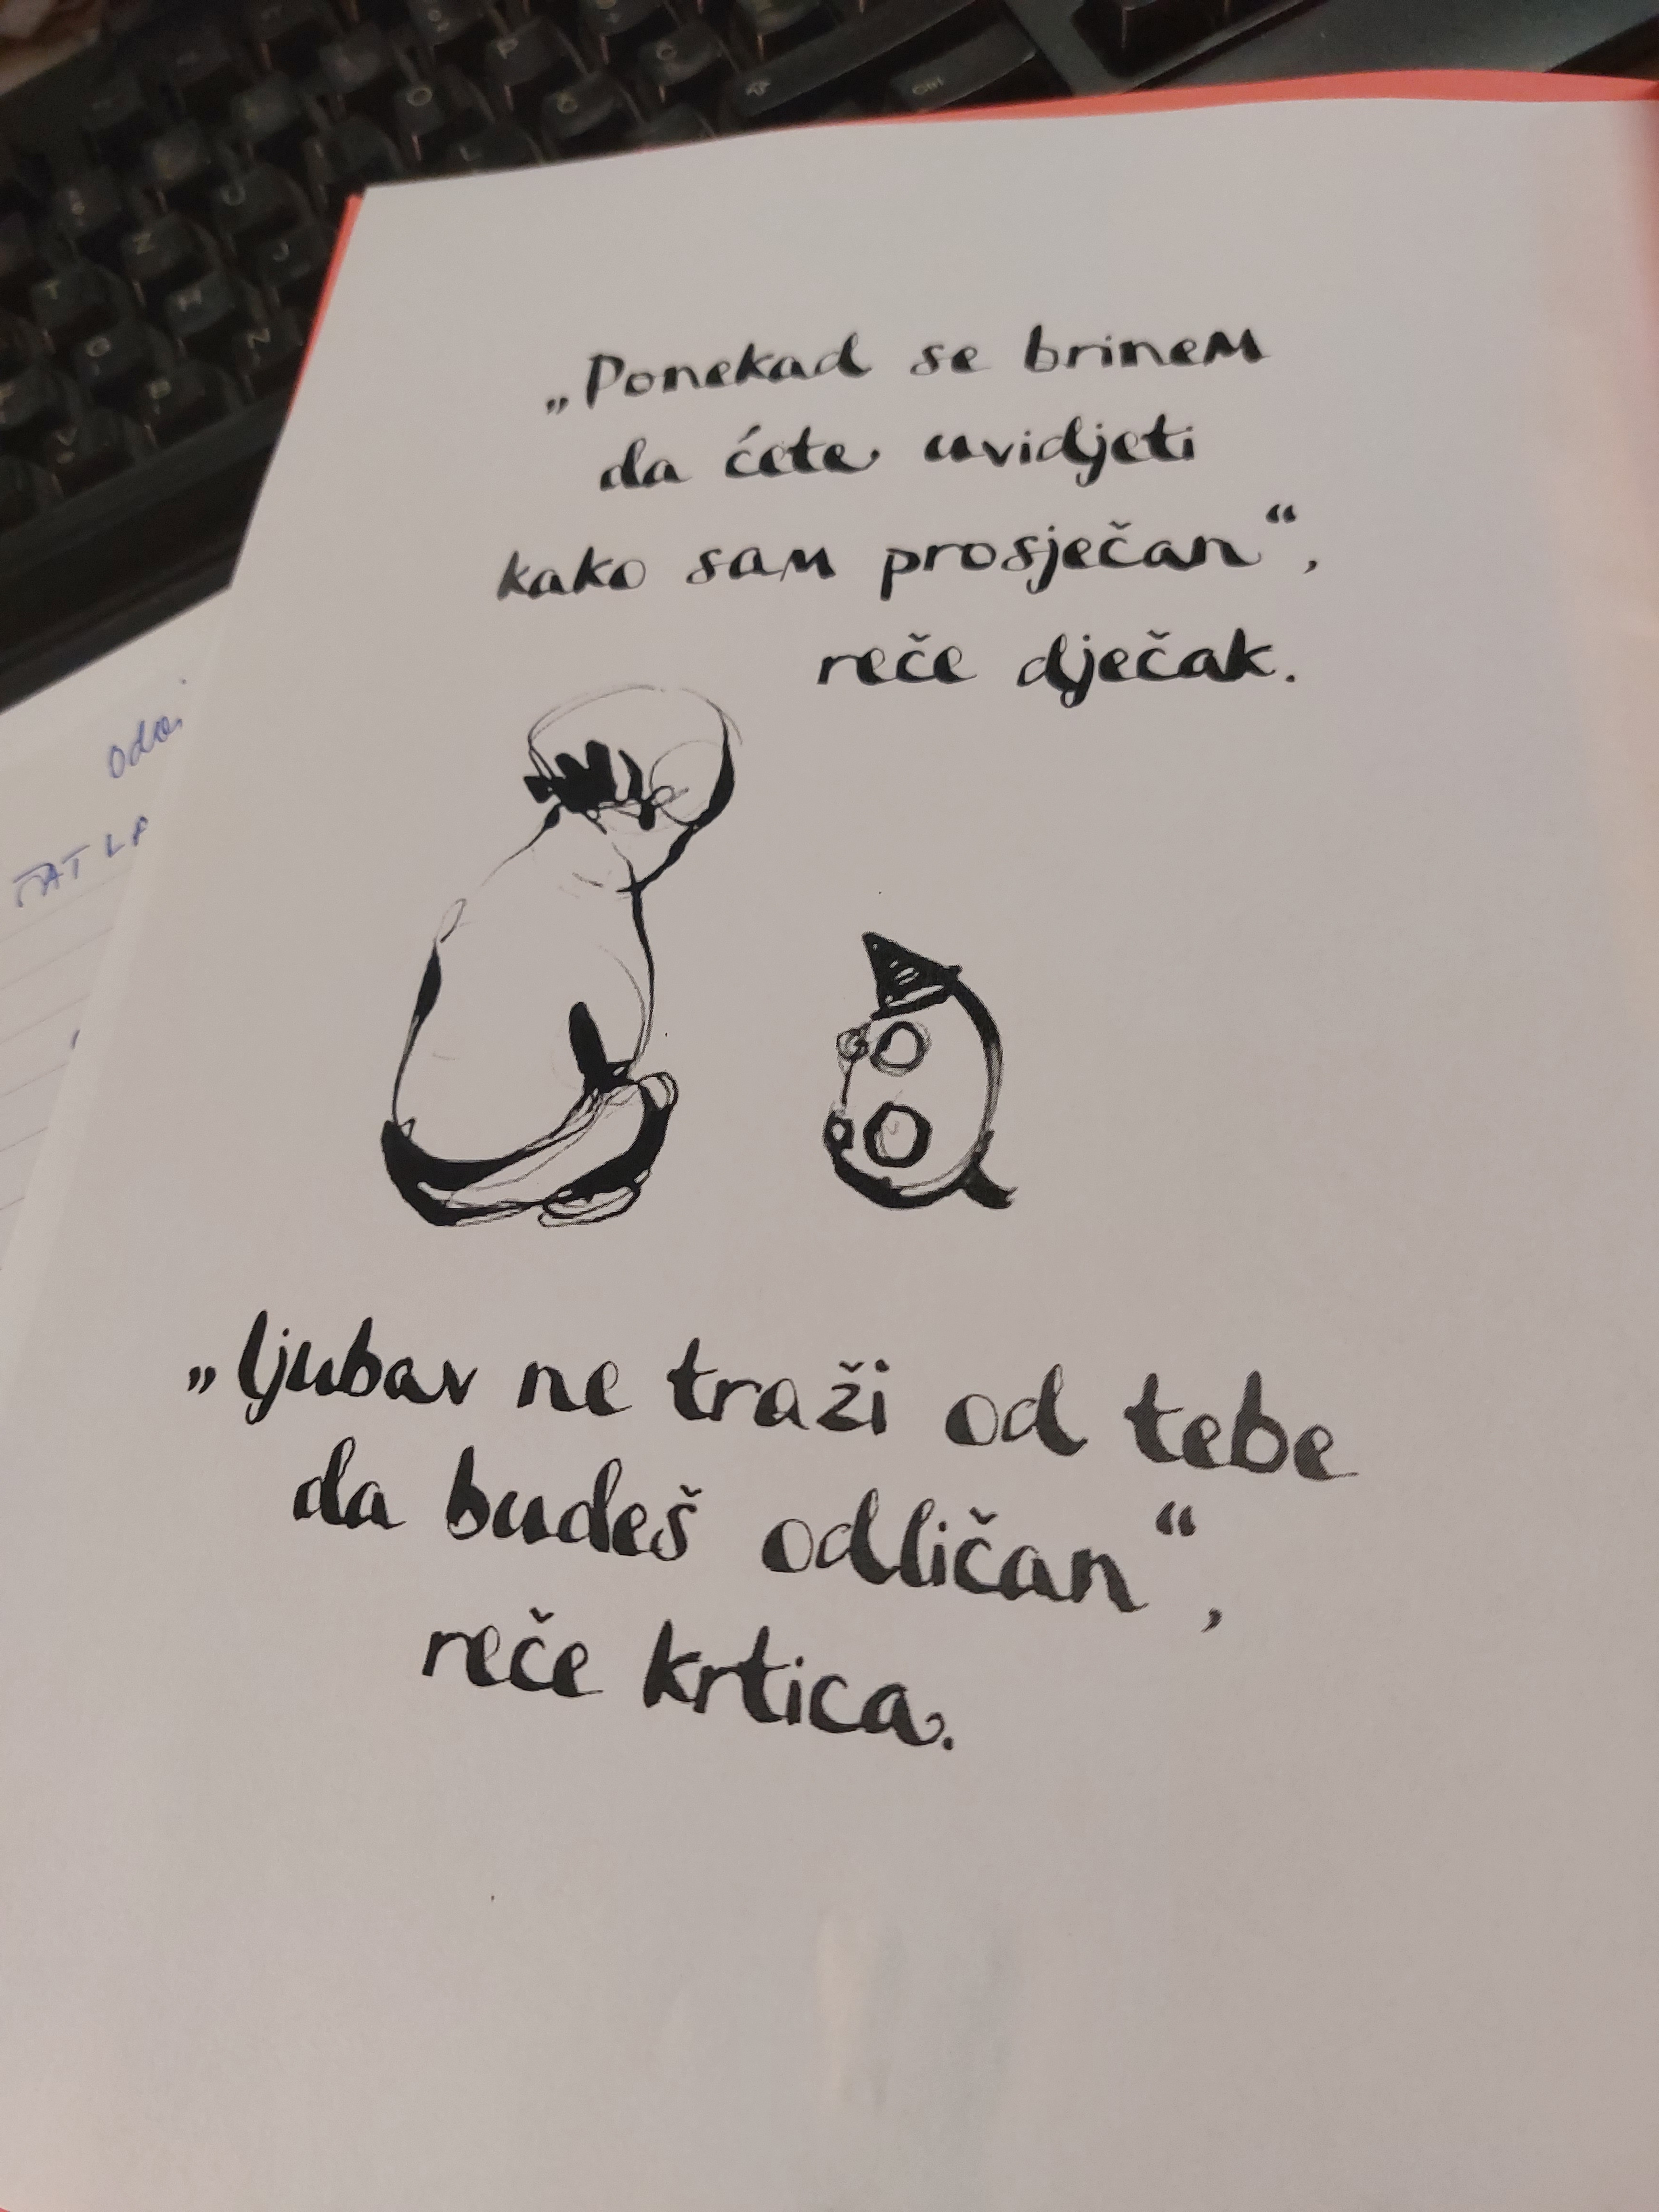 „Ponekad se brinem
da ćete uvidjeti
kako sam prosječan“,
reče dječak.
„ljubav ne traži od tebe
da budeš odličan“,
reče krtica.